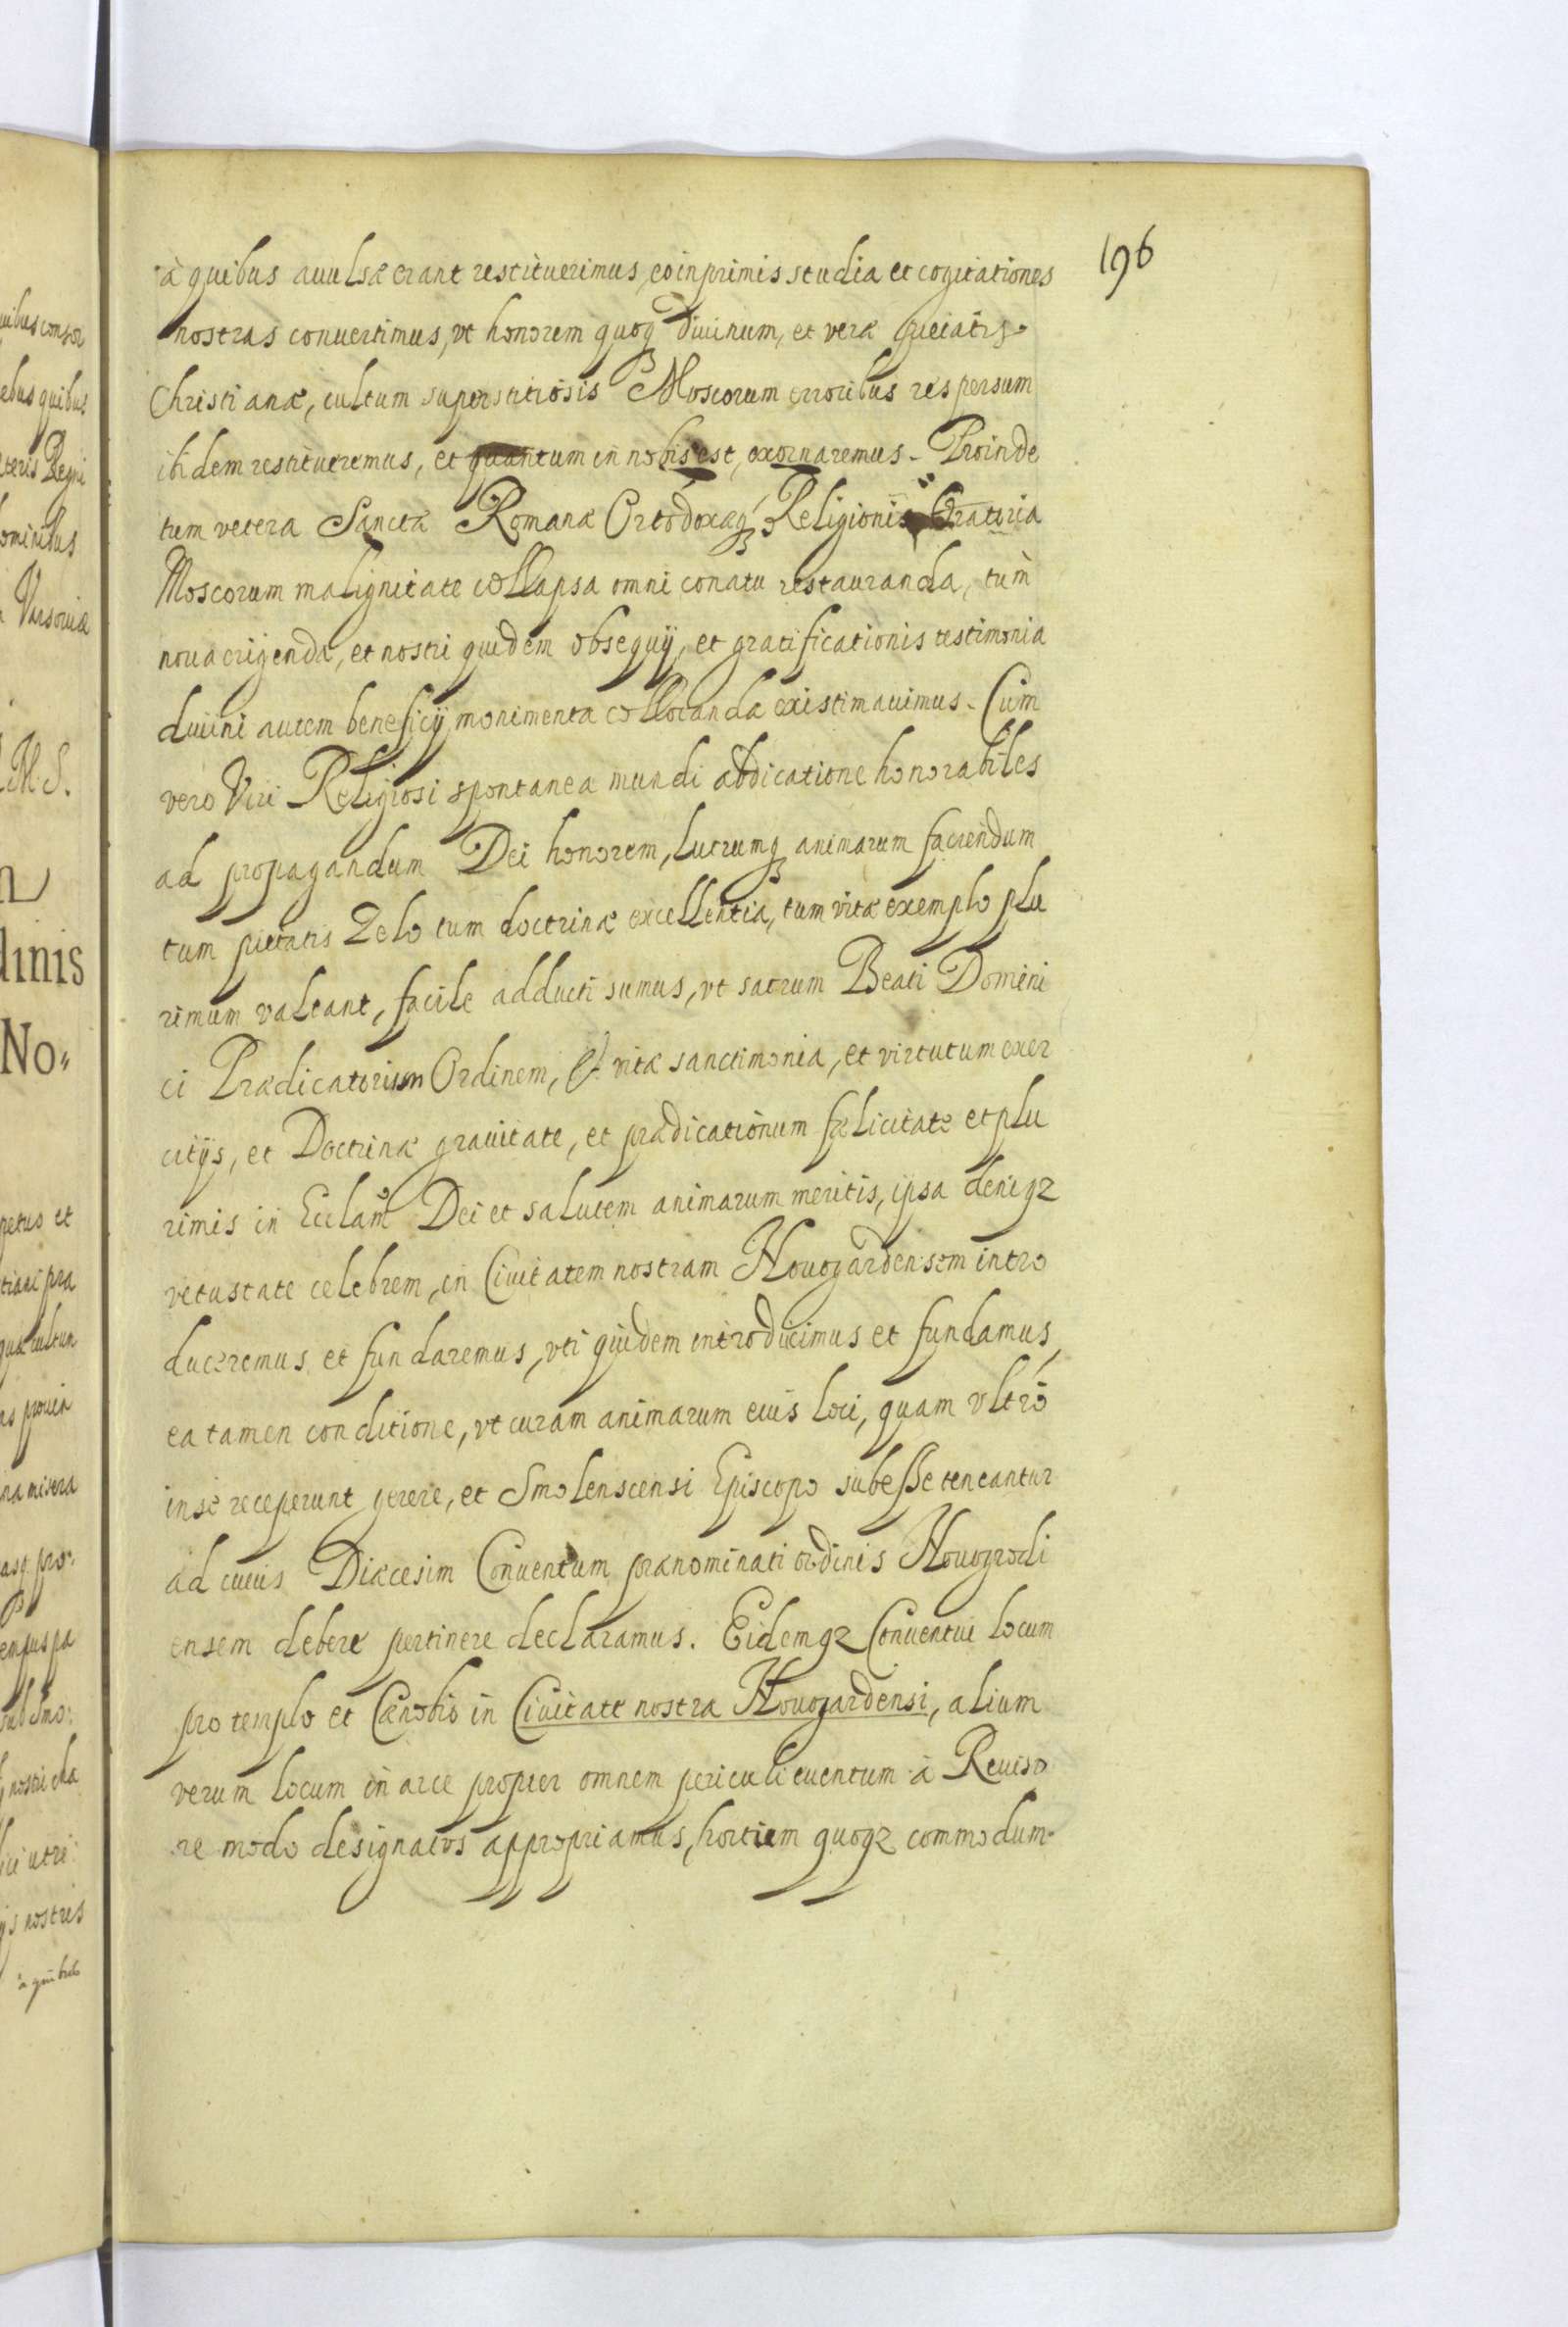 196
à quibus auulsæ erant restituerimus, eo inprimis studia et cogitationes
nostras conuertimus, vt honorem quoq diuinum, et veræ pietatis
Christianæ, cultum superstitiosis Moscorum erroribus respersum
ibidem restitueremus, et quantum in nobis est, exornaremus. Proinde
tum vetera Sanctæ Romanæ Ortodoxæq Religionis Oratoria
Moscorum malignitate collapsa omni conatu restauranda, tùm
noua erigenda, et nostri quidem obsequij, et gratificationis testimonia
diuini autem beneficij monimenta collocanda existimauimus. Cùm
vero Viri Religiosi spontanea mundi abdicatione honorabiles
ad propagandum Dei honorem, lucrumq animarum faciendum
tum pietatis Zelo tum doctrinæ excellentia, tum vitæ exemplo plu
rimum valeant, facile adducti sumus, vt sacrum Beati Domini
ci Prædicatorium Ordinem, et vitæ sanctimonia, et virtutum exer
citijs, et Doctrinæ grauitate, et prædicationum fælicitate et plu
rimis in Ecclam Dei et salutem animarum meritis, ipsa deniqz
vetustate celebrem, in Ciuitatem nostram Nouogardensem intro
duceremus et fundaremus, vti quidem introducimus et fundamus,
ea tamen conditione, vt curam animarum eius loci, quam vltrò
in se receperunt gerere, et Smolenscensi Episcopo subesse teneantur
ad cuius Diæcesim Conuentum prænominati ordinis Nouogrodi
ensem debere pertinere declaramus. Eidemqz Conuentui locum
pro templo et Cænobio in Ciuitate nostra Nouogardensi, alium
verum locum in arce propter omnem periculi euentum à Reuiso
re modo designatos appropriamus, hortum quoqz commodum
uibus conso
ebus quibus
ceteris Regni
ominibus
Varsouiæ
M. S.
dinis
No„
petus et
tiani pra
quæ cultun
as prouin
ina misera
asq pro:
empus pa
sub Smo:
nostri cha
ici utri:
ijs nostris
à quibus